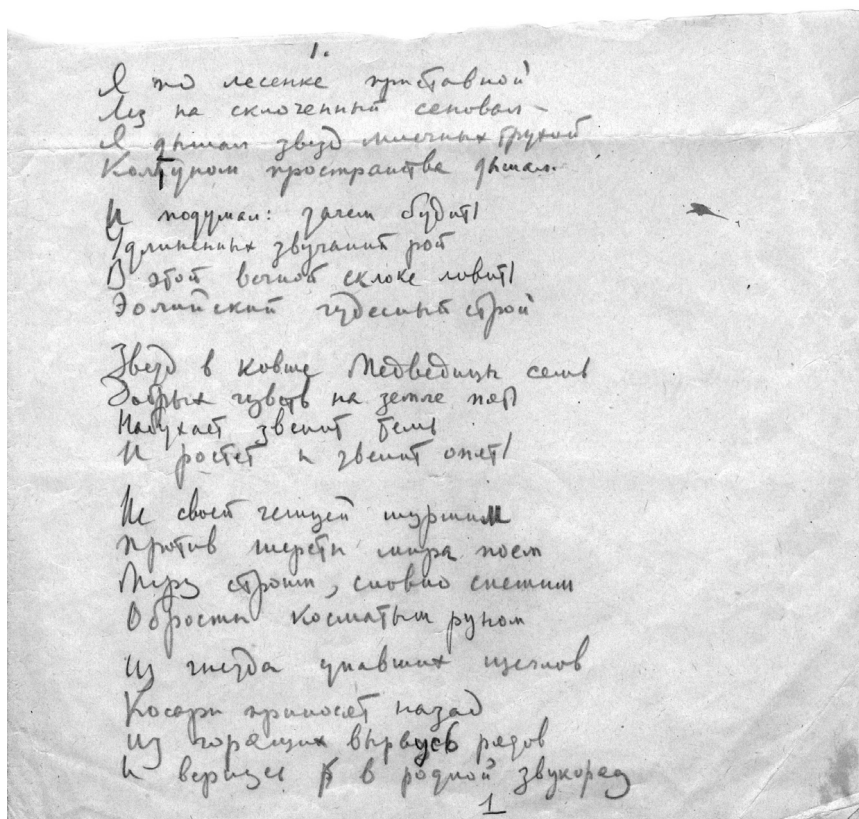 1.
Я по лесенке приставной
Лез на склоченный сеновал –
Я дышал звезд млечных трухой
Колтуном пространства дышал.
И подумал: зачем будить
Удлиненных звучаний рой
В этой вечной склоке ловить
Эолийский чудесный строй
Звезд в ковше Медведицы семь
Добрых чувств на земле пять
Набухает звенит темь
И ростет и звенит опять
Не своей чешуей шуршим
Против шерсти мира поем
Лиру строим, словно спешим
Обрости косматым руном
Из гнезда упавших щеглов
Косари приносят назад
Из горящих вырвусь рядов
И вернусь в родной звукоряд
1